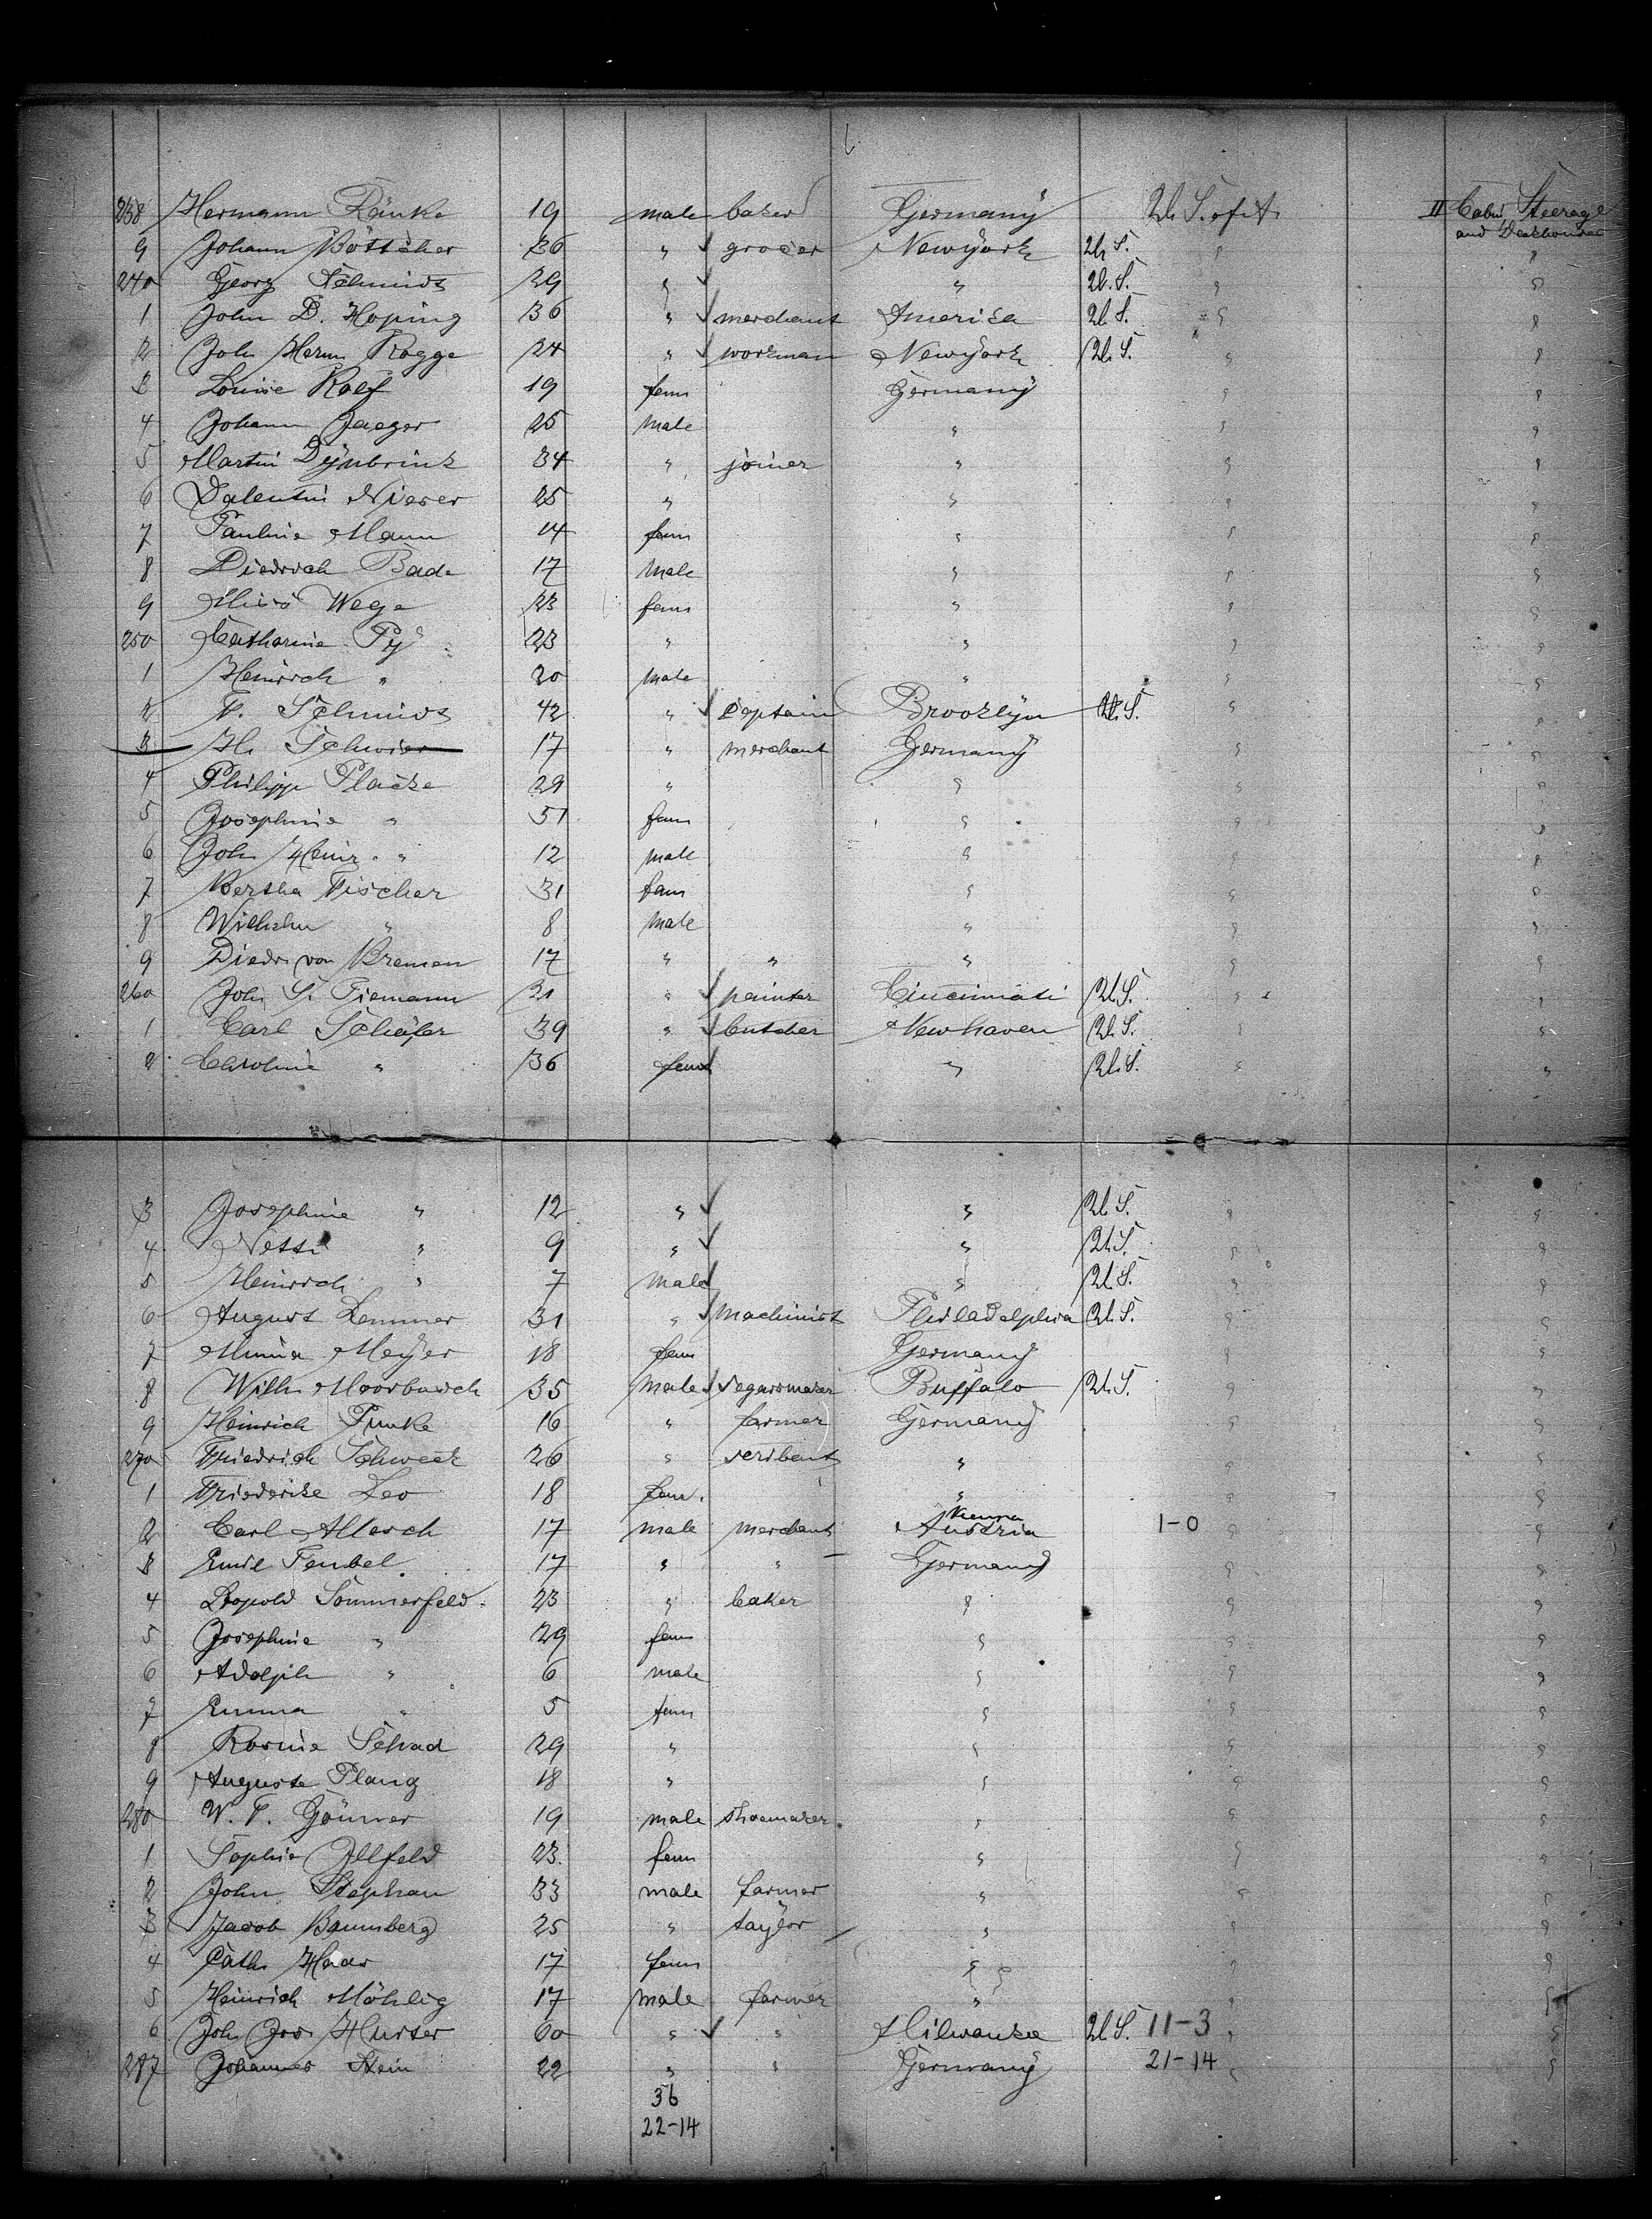 238 Hermann Ränke 19 male baker Germany U. S. of A. II Cabin, Steerage
and Deckhouse
9 Johann Böttcher 36 " grocer Newyork U. S. " "
240 Georg Schmidt 29 " " U. S. " "
1 John D. Hoping 36 " merchant America U. S. " "
2 Joh. Herm. Rogge 24 " workman Newyork U. S. " "
3 Louise Rolf 19 fem Germany " "
4 Johann Jaeger 25 male " " "
5 Martin 34 " joiner " " "
6 Valentin Nieser 25 " " " "
7 Pauline Mann 14 fem " " "
8 Diedrich Bade 17 male " " "
9 Wege 23 fem " " "
250 Catharine 23 " " " "
1 Heinrich " 20 male " " "
2 F. Schmidt 42 " Captain Brooklyn U. S. " "
3 H. Schwier 17 " merchant Germany " "
4 Philipp Placke 29 " " " "
5 Josephine " 51 fem " " "
6 Joh. Heinr. " 12 male " " "
7 Bertha Fischer 31 fem " " "
8 Wilhelm " 8 male " " "
9 Diedr. von Bremen 17 " " " " "
260 Joh. Tiemann 31 " painter Cincinnati U. S. " "
1 Carl Schäfer 39 " butcher Newhaven U. S. " "
2 Caroline " 36 fem " U. S. " "
3 Josephine " 12 " " U. S. " "
4 Netti " 9 " " U. S. " "
5 Heinrich " 7 male " U. S. " "
6 August Lemmer 31 " machinist Philadelphia U. S. " "
7 Minna Meyer 18 fem Germany " "
8 Wilh. Moorbusch 35 male segarsmaker Buffalo U. S. " "
9 Heinrich Funke 16 " farmer Germany " "
270 Friedrich Schweck 26 " scribent " " "
1 Friederike Leo 18 fem. " " "
Vienna
2 Carl Allesch 17 male merchant Austria 1-0 " "
3 Emil Teubel 17 " " Germany " "
4 Leopold Sommerfeld 23 " baker " " "
5 Josephine " 29 fem " " "
6 Adolph " 6 male " " "
7 Emma " 5 fem " " "
8 Rosine Schad 29 " " " "
9 Auguste Plang 18 " " " "
280 W. F. Gönner 19 male shoemaker " " "
1 Sophie Illfeld 23 fem " " "
2 John Stephan 33 male farmer " " "
3 Jacob Baumberg 25 " taylor " " "
4 Cath. Haas 17 fem " " "
5 Heinrich Möhlig 17 male farmer " " "
6 Joh. Jos. Hurter 60 " " Milwaukee U. S. 11-3 " "
287 Johannes Stein 22 " " Germany 21-14 " "
36
22-14